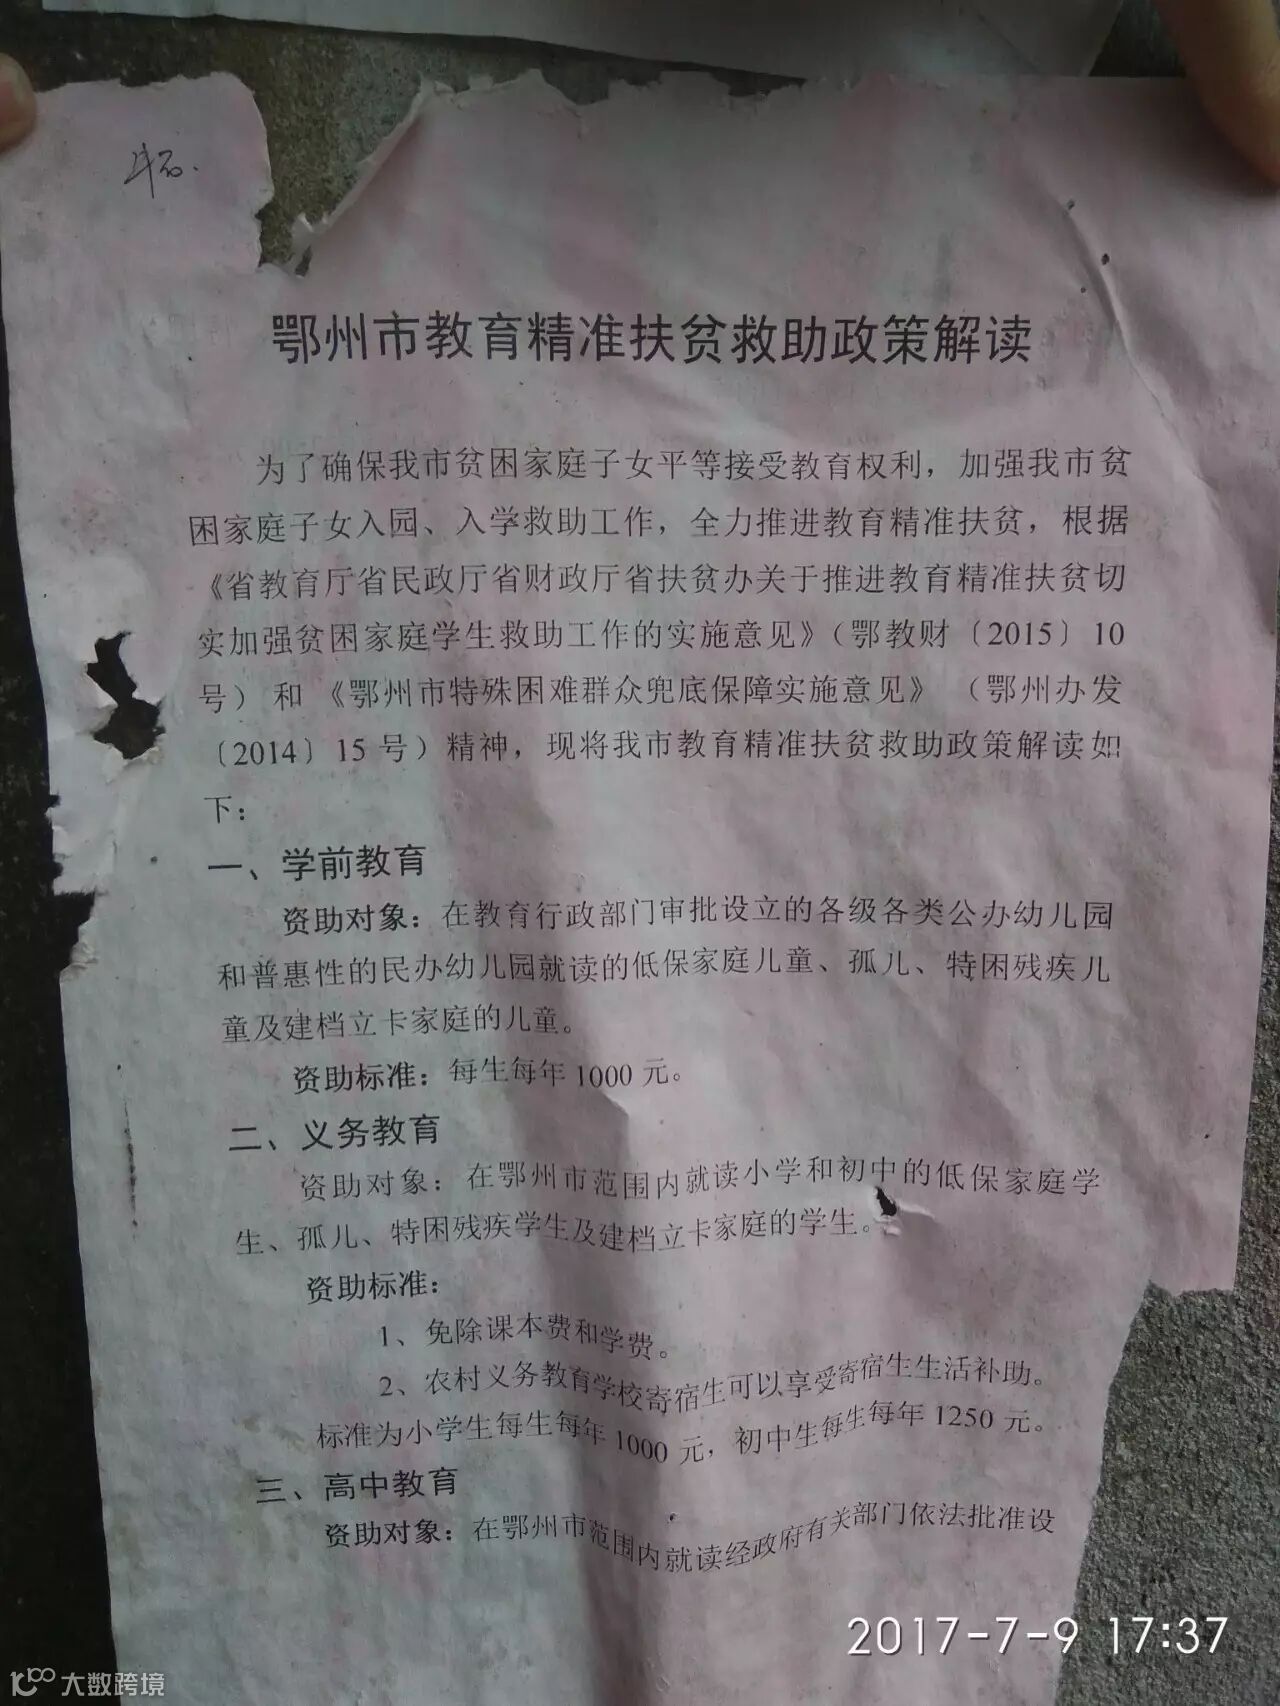 鄂州市教育精准扶贫救助政策解读
为了确保我市贫困家庭子女平等接受教育权利，加强我市贫
困家庭子女入园、入学救助工作，全力推进教育精准扶贫，根据
《省教育厅省民政厅省财政厅省扶贫办关于推进教育精准扶贫切
实加强贫困家庭学生救助工作的实施意见》（鄂教财〔2015〕10
号）和《鄂州市特殊困难群众兜底保障实施意见》（鄂州办发
〔2014〕15号）精神，现将我市教育精准扶贫救助政策解读如
下：
一、学前教育
资助对象：在教育行政部门审批设立的各级各类公办幼儿园
和普惠性的民办幼儿园就读的低保家庭儿童、孤儿、特困残疾儿
童及建档立卡家庭的儿童。
资助标准：每生每年1000元。
二、义务教育
资助对象：在鄂州市范围内就读小学和初中的低保家庭学
生、孤儿、特困残疾学生及建档立卡家庭的学生。
资助标准：
1、免除课本费和学费。
2、农村义务教育学校寄宿生可以享受寄宿生生活补助。
标准为小学生每生每年1000元，初中生每生每年1250元。
三、高中教育
资助对象：在鄂州市范围内就读经政府有关部门依法批准设
2017-7-9 17:37
大数跨境